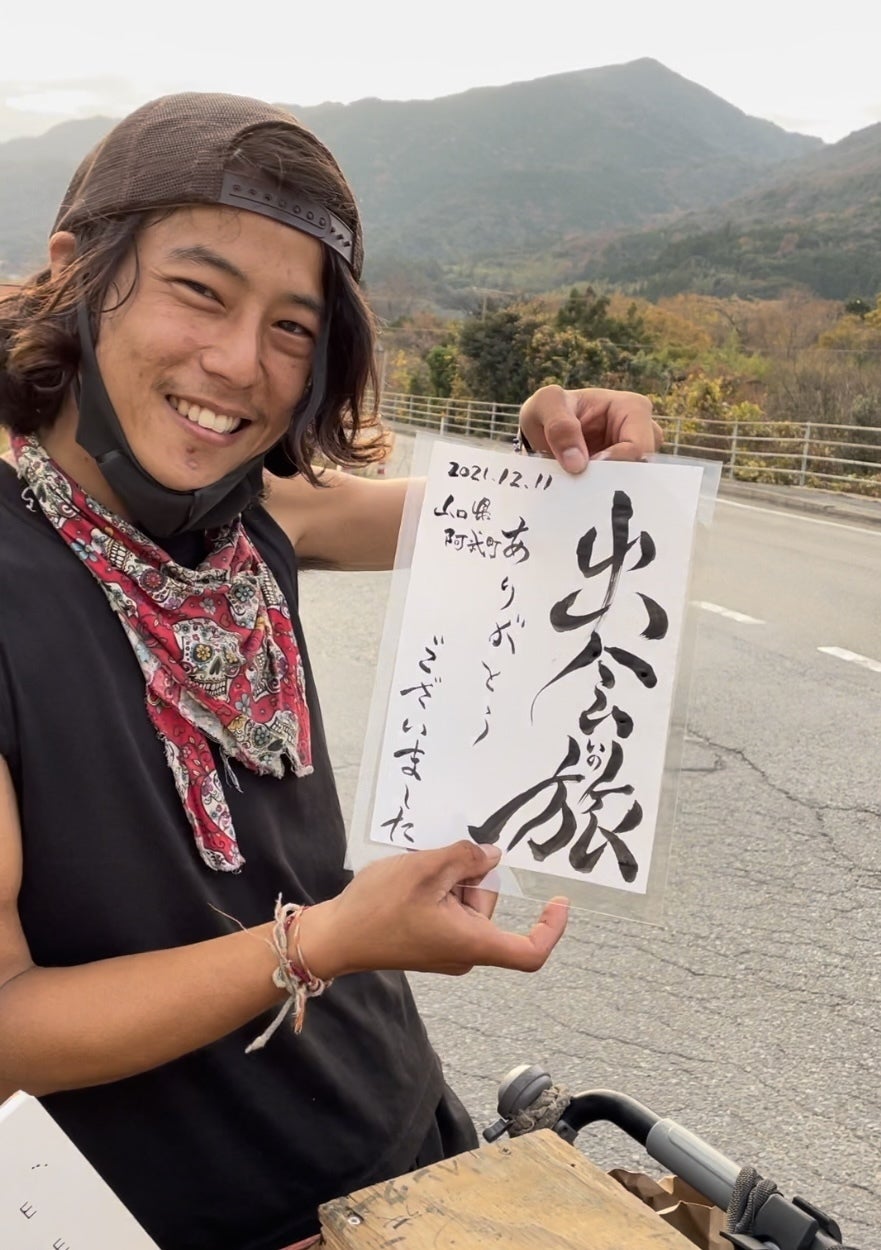 出会いの旅
ありがとう
ございました
2021.12.11
山口県
阿武町
E
E